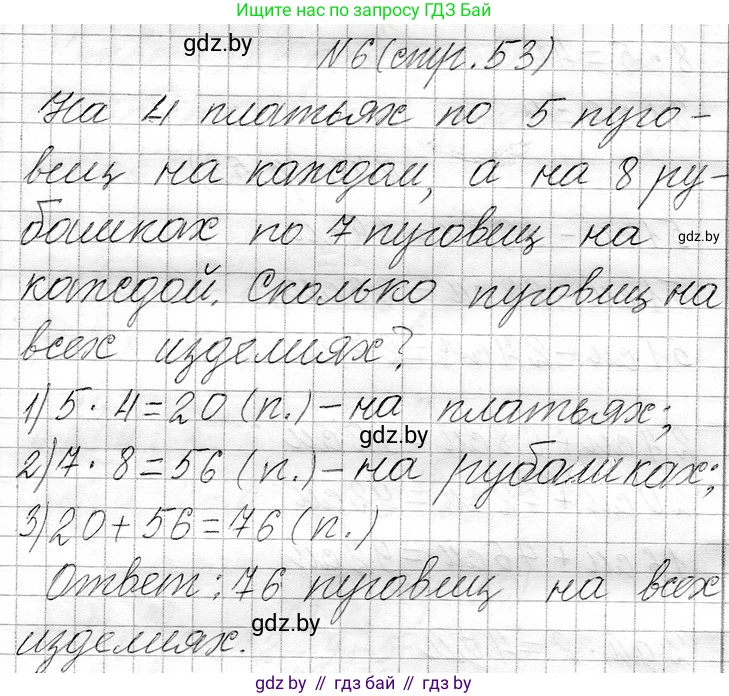 Ищите нас по запросу ГДЗ Бай
gdz.by
N 6 (стр. 53)
На 4 платьях по 5 пуго-
виц на каждом, а на 8 ру-
башках по 7 пуговиц на
gdz.by
каждой. Сколько пуговиц на
всех изделиях?
1) 5 · 4 = 20 (п.) – на платьях;
gdz.by
2) 7 · 8 = 56 (п.) – на рубашках;
3) 20 + 56 = 76 (п.)
Ответ: 76 пуговиц на всех
изделиях.
gdz.by
gdz.by // гдз бай // gdz.by